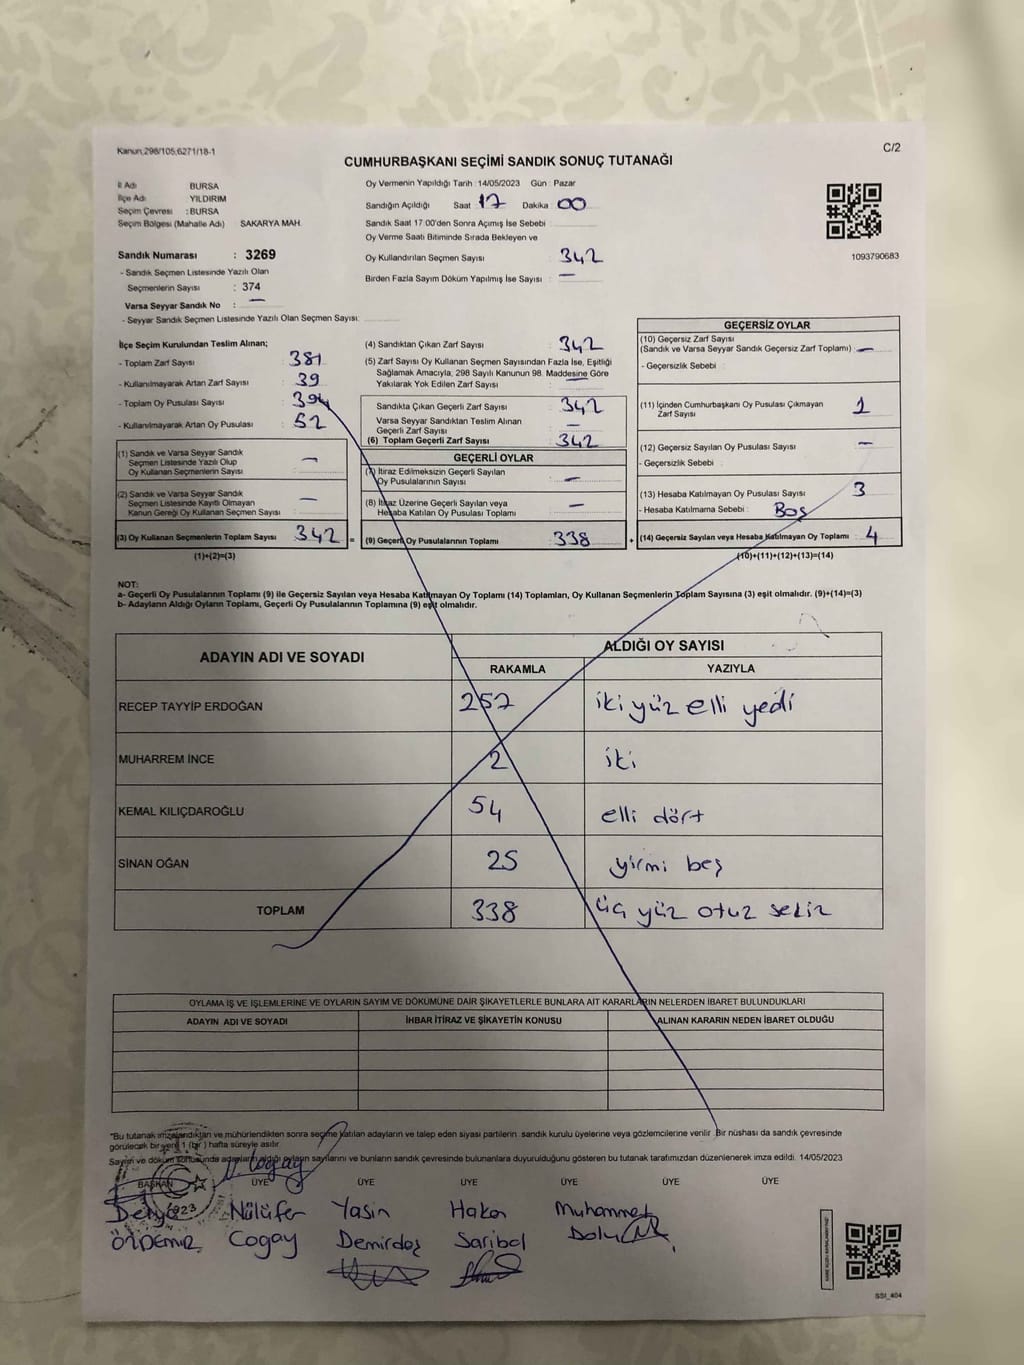 Kanun:298/105;6271/18-1
C/2
CUMHURBAŞKANI SEÇİMİ SANDIK SONUÇ TUTANAĞI
İl Adı BURSA
İlçe Adı YILDIRIM
Seçim Çevresi : BURSA
Seçim Bölgesi (Mahalle Adı) SAKARYA MAH.
Sandık Numarası : 3269
- Sandık Seçmen Listesinde Yazılı Olan
Seçmenlerin Sayısı : 374
Varsa Seyyar Sandık No : —
- Seyyar Sandık Seçmen Listesinde Yazılı Olan Seçmen Sayısı:
Oy Vermenin Yapıldığı Tarih : 14/05/2023 Gün : Pazar
Sandığın Açıldığı Saat : 17 Dakika : 00
Sandık Saat 17:00'den Sonra Açımış İse Sebebi :
Oy Verme Saati Bitiminde Sırada Bekleyen ve
Oy Kullandırılan Seçmen Sayısı : 342
Birden Fazla Sayım Döküm Yapılmış İse Sayısı : —
1093790683
İlçe Seçim Kurulundan Teslim Alınan;
- Toplam Zarf Sayısı : 381
- Kullanılmayarak Artan Zarf Sayısı : 39
- Toplam Oy Pusulası Sayısı : 394
- Kullanılmayarak Artan Oy Pusulası : 52
(1) Sandık ve Varsa Seyyar Sandık
Seçmen Listesinde Yazılı Olup
Oy Kullanan Seçmenlerin Sayısı : —
(2) Sandık ve Varsa Seyyar Sandık
Seçmen Listesinde Kayıtlı Olmayan
Kanun Gereği Oy Kullanan Seçmen Sayısı : —
(3) Oy Kullanan Seçmenlerin Toplam Sayısı : 342 =
(1)+(2)=(3)
(4) Sandıktan Çıkan Zarf Sayısı : 342
(5) Zarf Sayısı Oy Kullanan Seçmen Sayısından Fazla İse, Eşitliği
Sağlamak Amacıyla, 298 Sayılı Kanunun 98. Maddesine Göre
Yakılarak Yok Edilen Zarf Sayısı : —
Sandıkta Çıkan Geçerli Zarf Sayısı : 342
Varsa Seyyar Sandıktan Teslim Alınan
Geçerli Zarf Sayısı : —
(6) Toplam Geçerli Zarf Sayısı : 342
GEÇERLİ OYLAR
(7) İtiraz Edilmeksizin Geçerli Sayılan
Oy Pusulalarının Sayısı : —
(8) İtiraz Üzerine Geçerli Sayılan veya
Hesaba Katılan Oy Pusulası Toplamı : —
(9) Geçerli Oy Pusulalarının Toplamı : 338 +
GEÇERSİZ OYLAR
(10) Geçersiz Zarf Sayısı
(Sandık ve Varsa Seyyar Sandık Geçersiz Zarf Toplamı) : —
- Geçersizlik Sebebi :
(11) İçinden Cumhurbaşkanı Oy Pusulası Çıkmayan
Zarf Sayısı : 1
(12) Geçersiz Sayılan Oy Pusulası Sayısı : —
- Geçersizlik Sebebi :
(13) Hesaba Katılmayan Oy Pusulası Sayısı : 3
- Hesaba Katılmama Sebebi : Boş
(14) Geçersiz Sayılan veya Hesaba Katılmayan Oy Toplamı : 4
(10)+(11)+(12)+(13)=(14)
NOT:
a- Geçerli Oy Pusulalarının Toplamı (9) ile Geçersiz Sayılan veya Hesaba Katılmayan Oy Toplamı (14) Toplamları, Oy Kullanan Seçmenlerin Toplam Sayısına (3) eşit olmalıdır. (9)+(14)=(3)
b- Adayların Aldığı Oyların Toplamı, Geçerli Oy Pusulalarının Toplamına (9) eşit olmalıdır.
ADAYIN ADI VE SOYADI ALDIĞI OY SAYISI
RAKAMLA YAZIYLA
RECEP TAYYİP ERDOĞAN 257 iki yüz elli yedi
MUHARREM İNCE 2 iki
KEMAL KILIÇDAROĞLU 54 elli dört
SİNAN OĞAN 25 yirmi beş
TOPLAM 338 üç yüz otuz sekiz
OYLAMA İŞ VE İŞLEMLERİNE VE OYLARIN SAYIM VE DÖKÜMÜNE DAİR ŞİKAYETLERLE BUNLARA AİT KARARLARIN NELERDEN İBARET BULUNDUKLARI
ADAYIN ADI VE SOYADI İHBAR İTİRAZ VE ŞİKAYETİN KONUSU ALINAN KARARIN NEDEN İBARET OLDUĞU
*Bu tutanak imzalandıktan ve mühürlendikten sonra seçime katılan adayların ve talep eden siyasi partilerin sandık kurulu üyelerine veya gözlemcilerine verilir. Bir nüshası da sandık çevresinde
görülecek bir yere 1 (bir) hafta süreyle asılır.
Sayım ve döküm sonucunda adayların aldığı oyların sayılarını ve bunların sandık çevresinde bulunanlara duyurulduğunu gösteren bu tutanak tarafımızdan düzenlenerek imza edildi. 14/05/2023
BAŞKAN ÜYE ÜYE ÜYE ÜYE ÜYE ÜYE
Derya Nülüfer Yasin Hakan Muhammet
ÖZDEMİR Cogay Demirdaş Saribal
SSI_404